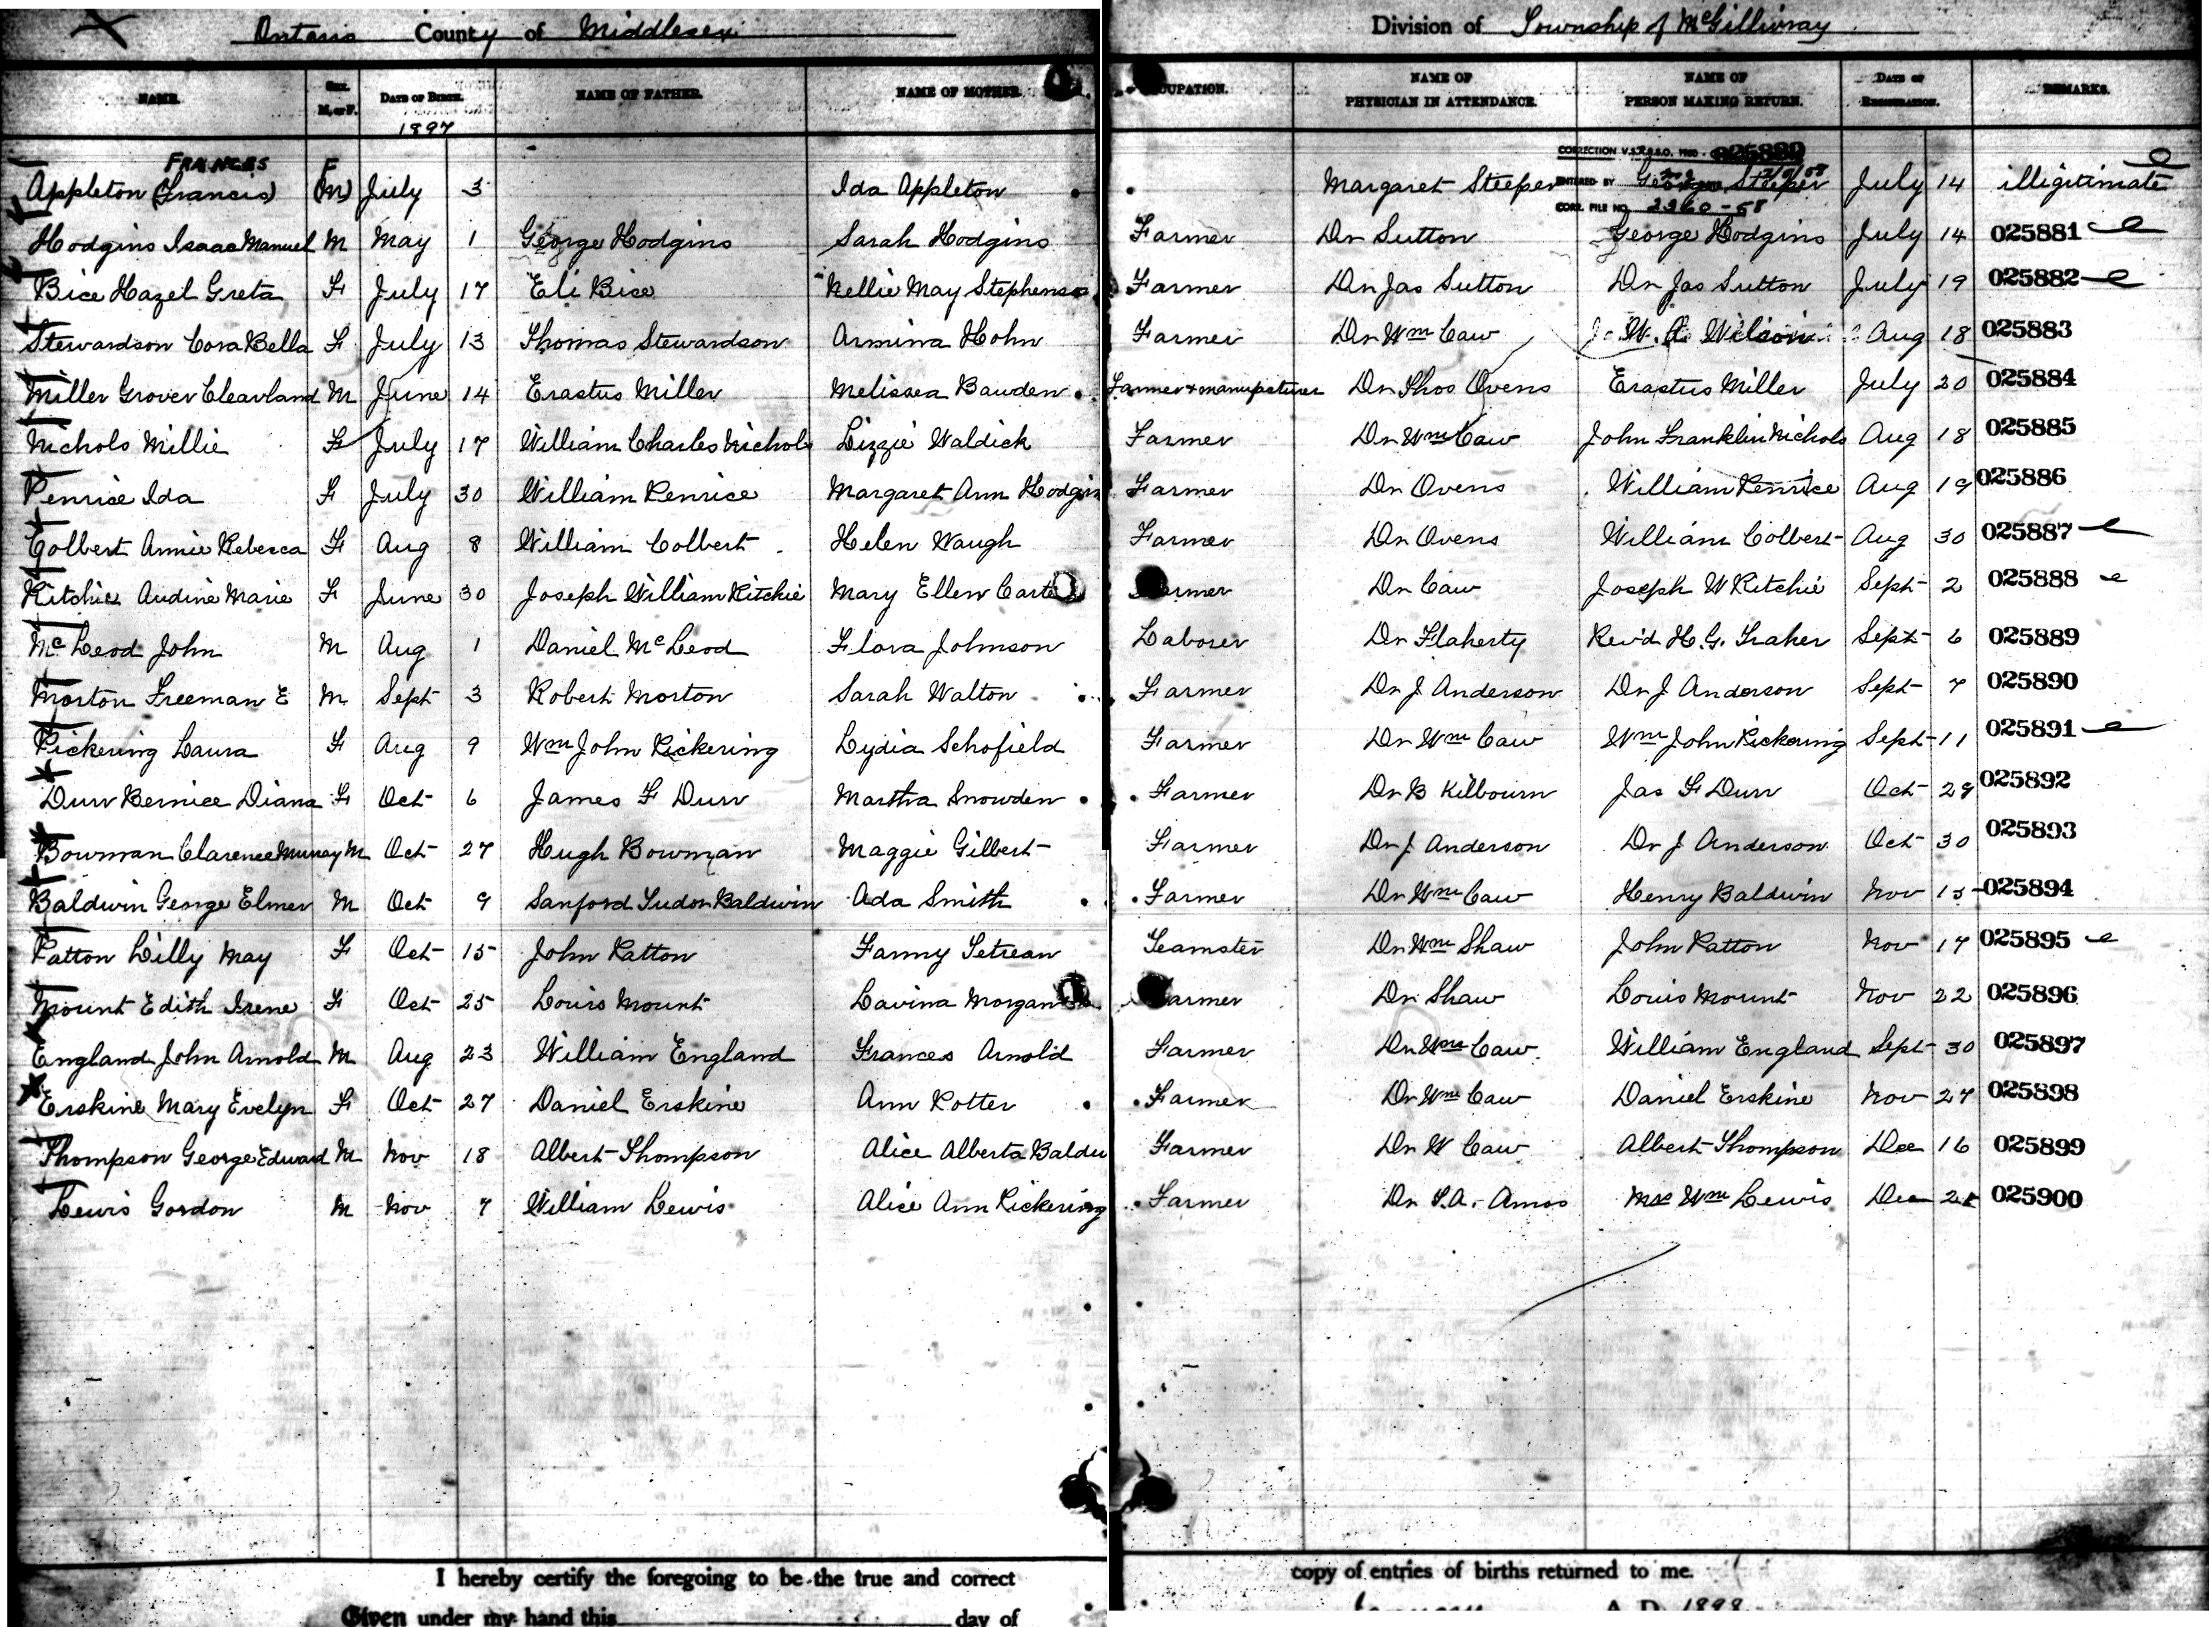 Ontario County of Middlesex Division of Township of McGillivray
NAME. SEX. M. or F. DATE OF BIRTH. NAME OF FATHER. NAME OF MOTHER. OCCUPATION. NAME OF PHYSICIAN IN ATTENDANCE. NAME OF PERSON MAKING RETURN. DATE OF REGISTRATION. REMARKS.
1897
FRANCES F CORRECTION 025880
Appleton (Francis) (M) July 3 Ida Appleton Margaret Steeper ENTERED BY George Steeper July 14 illigitimate
CORR. FILE NO. 2260-58
Hodgins Isaac Manuel M May 1 George Hodgins Sarah Hodgins Farmer Dr Sutton George Hodgins July 14 025881
Bice Hazel Greta F July 17 Eli Bice Nellie May Stephenson Farmer Dr Jas Sutton Dr Jas Sutton July 19 025882
Stewardson Cora Bella F July 13 Thomas Stewardson Armina Hohn Farmer Dr Wm Caw W. A. Wilson Aug 18 025883
Miller Grover Cleavland M June 14 Erastus Miller Melissea Bawden Farmer & manufacturer Dr Thos Ovens Erastus Miller July 20 025884
Nichols Millie F July 17 William Charles Nichols Lizzie Waldick Farmer Dr Wm Caw John Franklin Nichols Aug 18 025885
Penrice Ida F July 30 William Penrice Margaret Ann Hodgin Farmer Dr Ovens William Penrice Aug 19 025886
Colbert Annie Rebecca F Aug 8 William Colbert Helen Waugh Farmer Dr Ovens William Colbert Aug 30 025887
Ritchie Audine Marie F June 30 Joseph William Ritchie Mary Ellen Carte Farmer Dr Caw Joseph W Ritchie Sept 2 025888
McLeod John M Aug 1 Daniel McLeod Flora Johnson Laborer Dr Flaherty Rev'd H. G. Fraher Sept 6 025889
Morton Freeman E M Sept 3 Robert Morton Sarah Walton Farmer Dr J Anderson Dr J Anderson Sept 7 025890
Pickering Laura F Aug 9 Wm John Pickering Lydia Schofield Farmer Dr Wm Caw Wm John Pickering Sept 11 025891
Durr Bernice Diana F Oct 6 James F Durr Martha Snowden Farmer Dr B Kilbourn Jas F Durr Oct 29 025892
Bowman Clarence Murray M Oct 27 Hugh Bowman Maggie Gilbert Farmer Dr J Anderson Dr J Anderson Oct 30 025893
Baldwin George Elmer M Oct 9 Sanford Tudor Baldwin Ada Smith Farmer Dr Wm Caw Henry Baldwin Nov 15 025894
Patton Lilly May F Oct 15 John Patton Fanny Tetreau Teamster Dr Wm Shaw John Patton Nov 17 025895
Mount Edith Irene F Oct 25 Louis Mount Lavina Morgan Farmer Dr Shaw Louis Mount Nov 22 025896
England John Arnold M Aug 23 William England Frances Arnold Farmer Dr Wm Caw William England Sept 30 025897
Erskine Mary Evelyn F Oct 27 Daniel Erskine Ann Potter Farmer Dr Wm Caw Daniel Erskine Nov 27 025898
Thompson George Edward M Nov 18 Albert Thompson Alice Alberta Baldw Farmer Dr W Caw Albert Thompson Dec 16 025899
Lewis Gordon M Nov 7 William Lewis Alice Ann Pickering Farmer Dr T. A. Amos Mrs Wm Lewis Dec 025900
I hereby certify the foregoing to be the true and correct copy of entries of births returned to me.
Given under my hand this day of A. D. 1898